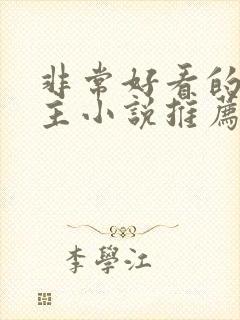 非常好看的
主小說推薦
李學江